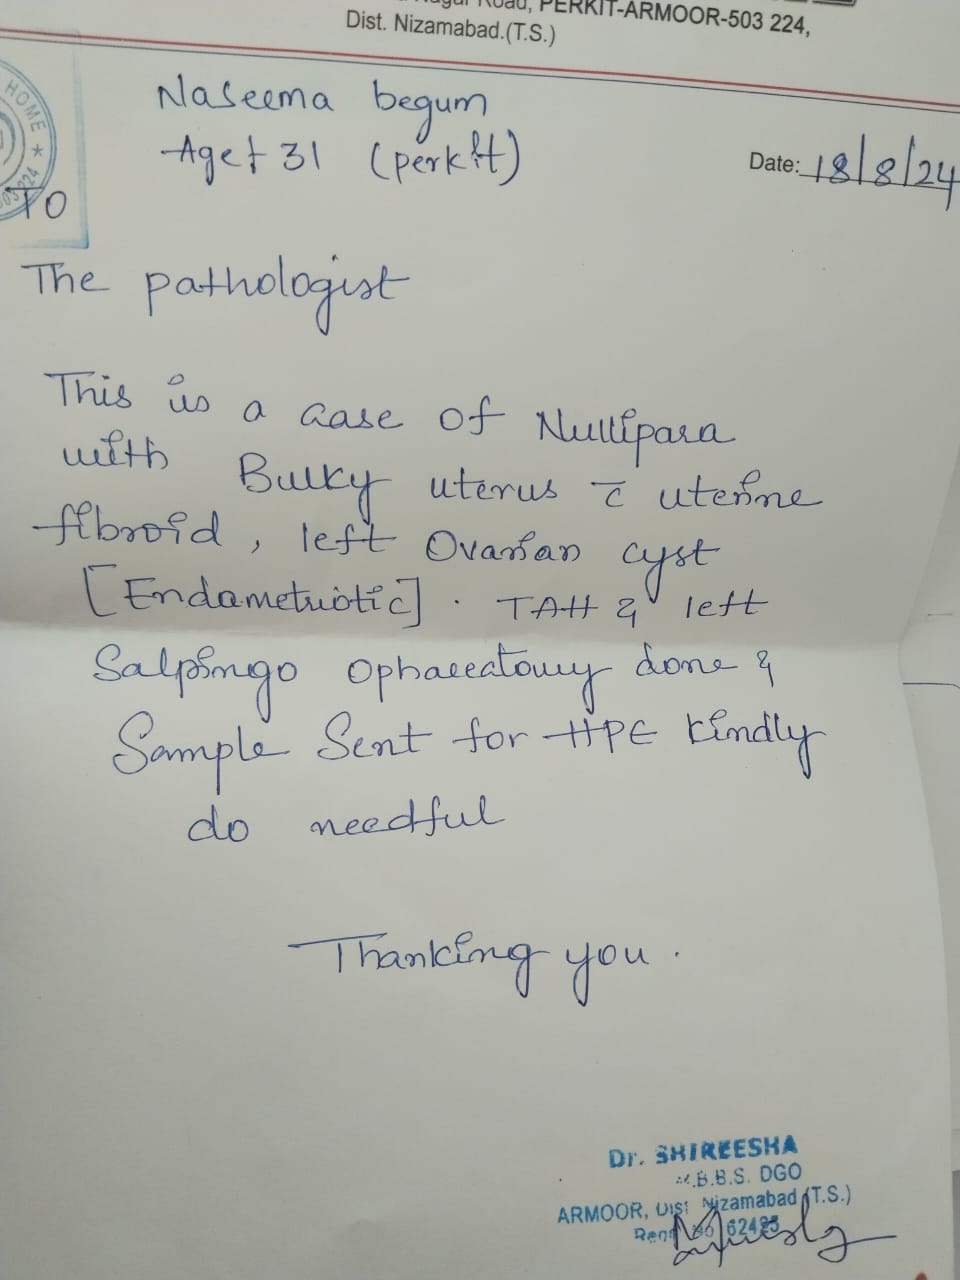 Road, PERKIT-ARMOOR-503 224,
Dist. Nizamabad.(T.S.)
HOME *
Naseema begum
Age + 31 (perkit)
Date: 18/8/24
TO
The pathologist
This is a case of Nullipara
with Bulky uterus c̄ uterine
fibroid, left Ovarian cyst
[Endametriotic]. TAH & left
Salpingo ophaeeatomy done &
Sample Sent for HPE kindly
do needful
Thanking you.
Dr. SHIREESHA
M.B.B.S. DGO
ARMOOR, Dist Nizamabad (T.S.)
62425